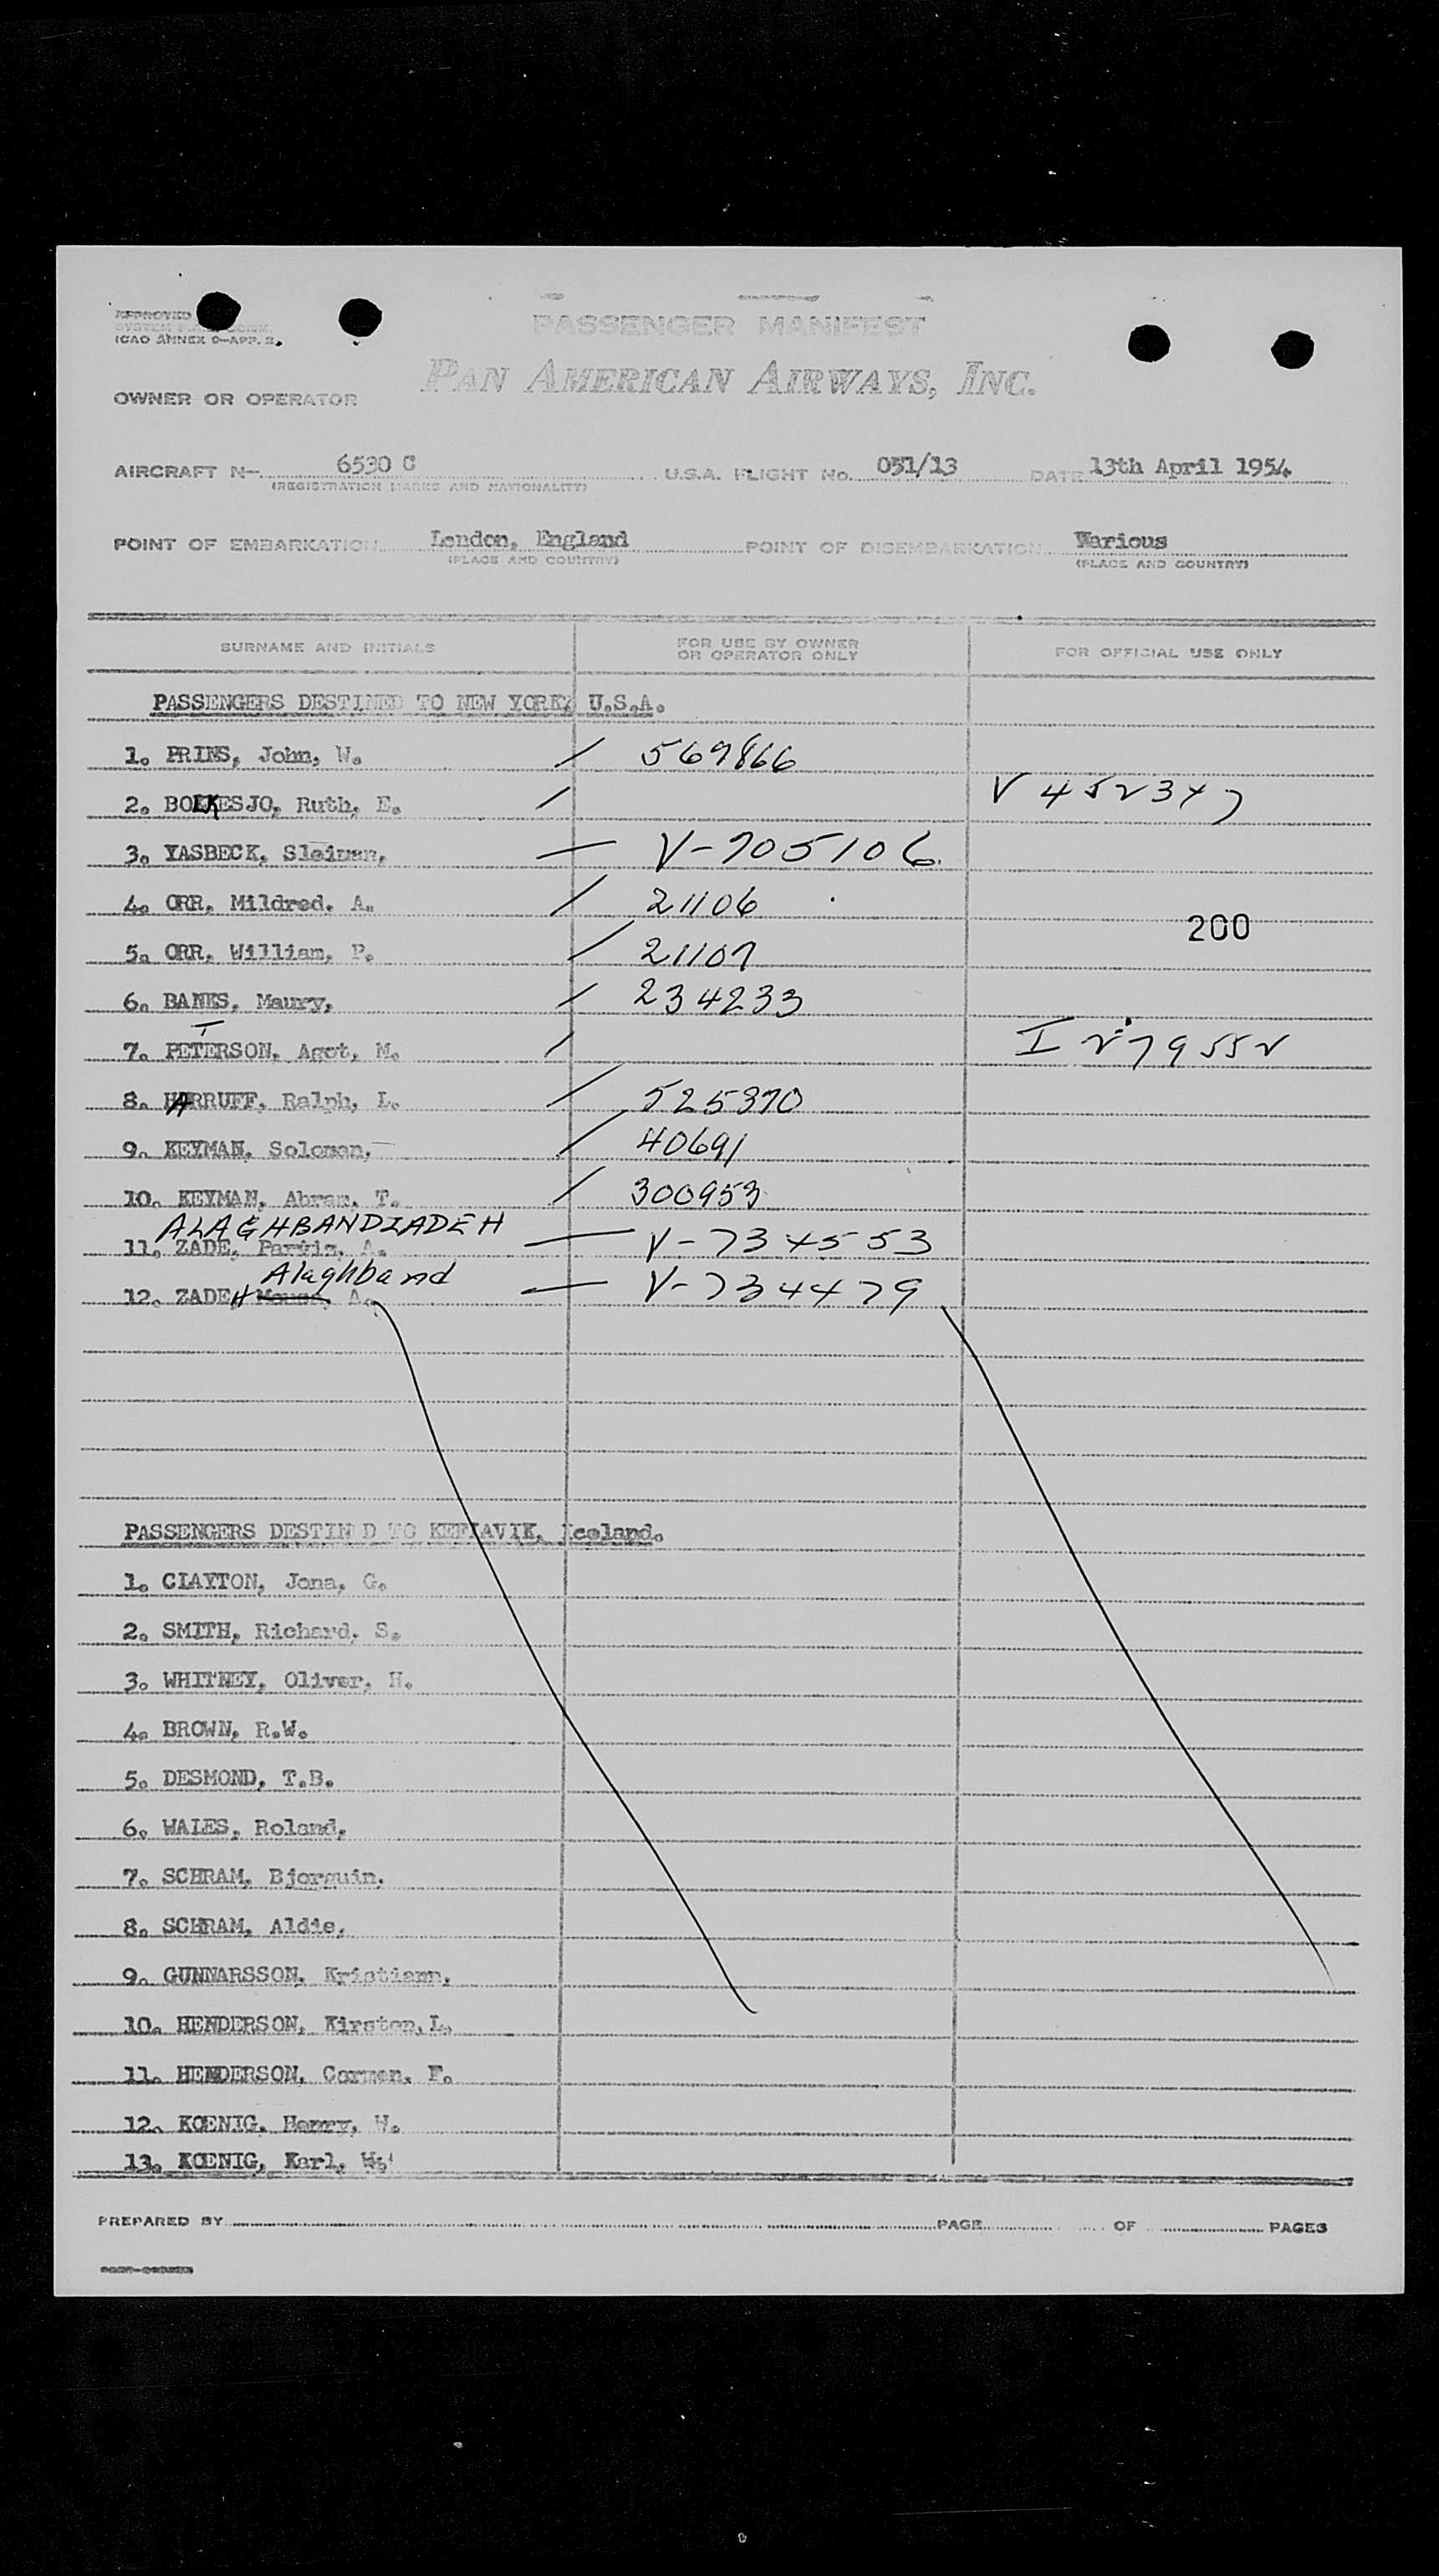 APPROVED
ICAO ANNEX 9-APP. 2.
PASSENGER MANIFEST
PAN AMERICAN AIRWAYS, INC.
OWNER OR OPERATOR
AIRCRAFT N- 6530 C U.S.A. FLIGHT No. 051/13 DATE 13th April 1954
(REGISTRATION MARKS AND NATIONALITY)
POINT OF EMBARKATION London, England POINT OF DISEMBARKATION Warious
(PLACE AND COUNTRY) (PLACE AND COUNTRY)
SURNAME AND INITIALS FOR USE BY OWNER OR OPERATOR ONLY FOR OFFICIAL USE ONLY
PASSENGERS DESTINED TO NEW YORK, U.S.A.
1. PRINS, John, W. / 569866
2. BOLKESJO, Ruth, E. / V 452347
3. YASBECK, Sleiman, — V-705106
4. ORR, Mildred, A. / 21106
5. ORR, William, P. / 21107
200
6. BANKS, Maury, / 234233
7. PETERSON, Agot, M. / I 279552
8. HARRUFF, Ralph, L. / 525370
9. KEYMAN, Soloman, / 40691
10. KEYMAN, Abram, T. / 300953
ALAGHBANDZADEH
11. ZADE, Parviz, A. — V-734553
Alaghband
12. ZADEH A. — V-734479
PASSENGERS DESTIN D TO KEFLAVIK, Iceland.
1. CLAYTON, Jona, G.
2. SMITH, Richard, S.
3. WHITNEY, Oliver, H.
4. BROWN, R.W.
5. DESMOND, T.B.
6. WALES, Roland,
7. SCHRAM, Bjorguin,
8. SCHRAM, Aldis,
9. GUNNARSSON, Kristiann,
10. HENDERSON, Kirsten, L.
11. HENDERSON, Carmen, F.
12. KOENIG, Henry, W.
13. KOENIG, Karl, W.
PREPARED BY PAGE OF PAGES